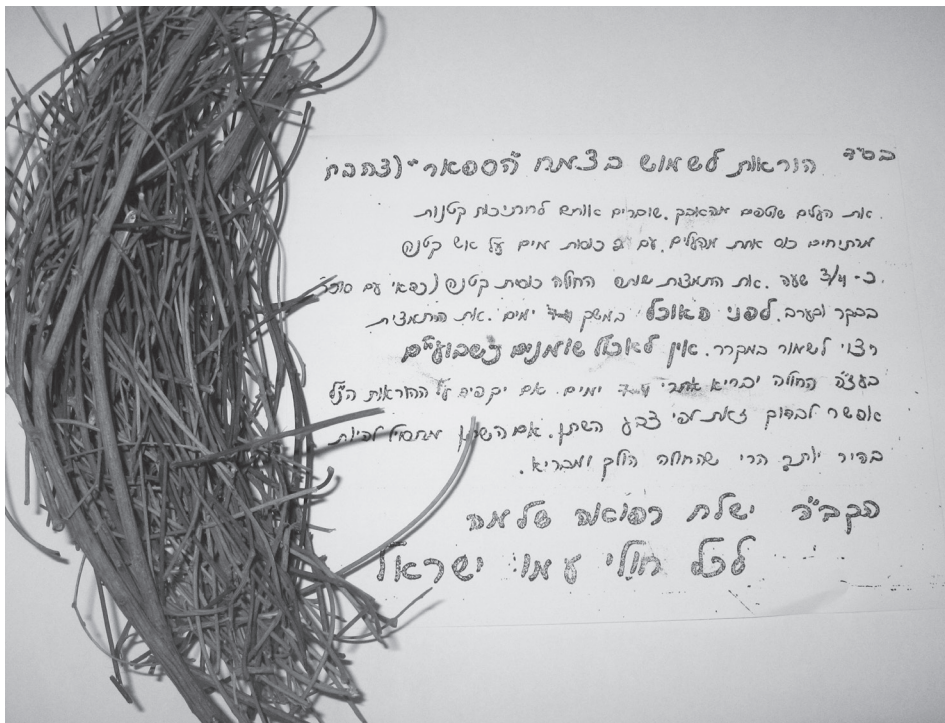 בס"ד
הוראות לשמוש בצמח "הספאר" (צהבת
את העלים שוטפים מהאבק. שוברים אותם לחתיכות קטנות
מרתיחים כוס אחת מהעלים. עם כוסות מים על אש קטנה
כ- 3/4 שעה. את התמצית שותה החולה כוסית קטנה (כפאי עם סוכר
בבקר ובערב. לפני האוכל במשך 7-4 ימים. את התמצית
רצוי לשמור במקרר. אין לאכול שומנים כשבועיים
בעז"ה החולה יבריא אחרי 7-4 ימים. אם יקפיד על ההוראות הנ"ל
אפשר לבדוק זאת לפי צבע השתן. אם השתן מתחיל להיות
בהיר יותר הרי שהחולה הולך ומבריא.
הקב"ה ישלח רפואה שלמה
לכל חולי עמו ישראל